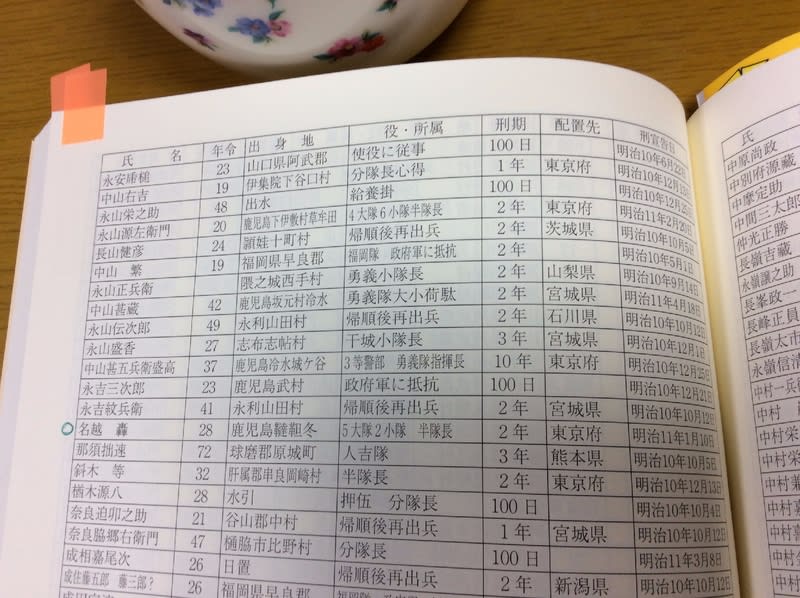 氏 名 年令 出身地 役・所属 刑期 配置先 刑宣告日
永安 槌 23 山口県阿武郡 使役に従事 100日 明治10年6月22
中山右吉 19 伊集院下谷口村 分隊長心得 1年 東京府 明治10年12月13
永山栄之助 48 出水 給養掛 100日 明治10年12月2
永山源左衛門 20 鹿児島下伊敷村草牟田 4大隊6小隊半隊長 2年 東京府 明治11年2月20日
長山健彦 24 頴娃十町村 帰順後再出兵 2年 茨城県 明治10年10月5
中山 繁 19 福岡県早良郡 福岡隊 政府軍に抵抗 2年 明治10年5月1日
永山正兵衛 隈之城西手村 勇義小隊長 2年 山梨県 明治10年9月14日
中山甚蔵 42 鹿児島坂元村冷水 勇義隊大小荷駄 2年 宮城県 明治11年4月18日
永山伝次郎 49 永利山田村 帰順後再出兵 2年 石川県 明治10年10月12
永山盛香 27 志布志帖村 干城小隊長 3年 宮城県 明治10年12月1
中山甚五兵衛盛高 37 鹿児島冷水城ケ谷 3等警部 勇義隊指揮長 10年 東京府 明治10年12月25
永吉三次郎 23 鹿児島武村 政府軍に抵抗 100日 明治10年12月21
永吉紋兵衛 41 永利山田村 帰順後再出兵 2年 宮城県 明治10年10月12
名越 轟 28 鹿児島韃靼冬 5大隊2小隊 半隊長 2年 東京府 明治11年1月10日
那須拙速 72 球磨郡原城町 人吉隊 3年 熊本県 明治10年10月5
斜木 等 32 肝属郡串良岡崎村 半隊長 2年 東京府 明治10年12月13
楢木源八 28 水引 押伍 分隊長 100日 明治10年10月4
奈良迫卯之助 21 谷山郡中村 帰順後再出兵 1年 宮城県 明治10年10月12
奈良脇郷右衛門 47 樋脇市比野村 分隊長 100日 明治11年3月8日
成相嘉尾次 26 日置 帰順後再出兵 2年 新潟県 明治10年10月12
成住藤五郎 藤三郎? 26 福岡県早良郡
氏
中原尚政
中別府源蔵
中摩定助
中間三太郎
仲光正勝
長嶺吉蔵
永嶺譲之助
長峯政一
長峰正員
長嶺太市
永嶺信清
中村一兵
中村
中村栄
中村栄
中村嘉
中村嘉
中村
中村
中村